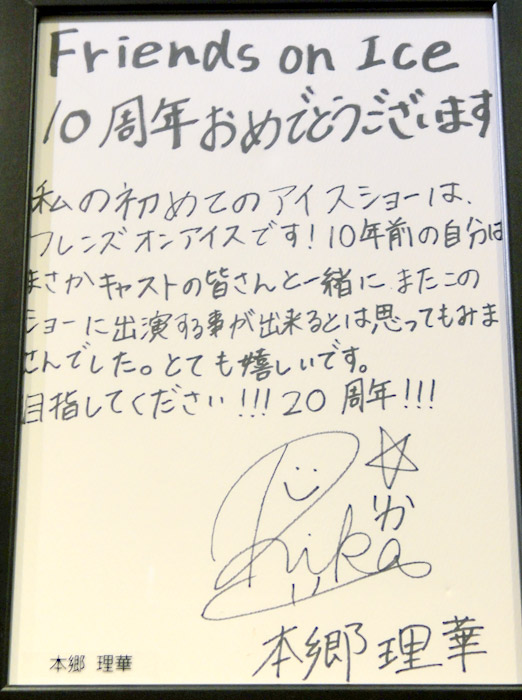 Friends on Ice
10周年おめでとうございます
私の初めてのアイスショーは、
フレンズオンアイスです！10年前の自分は
まさかキャストの皆さんと一緒に、またこの
ショーに出演する事が出来るとは思ってもみま
せんでした。とても嬉しいです。
目指してください!!!20周年!!!
Rika
りか
本郷理華
本郷 理華